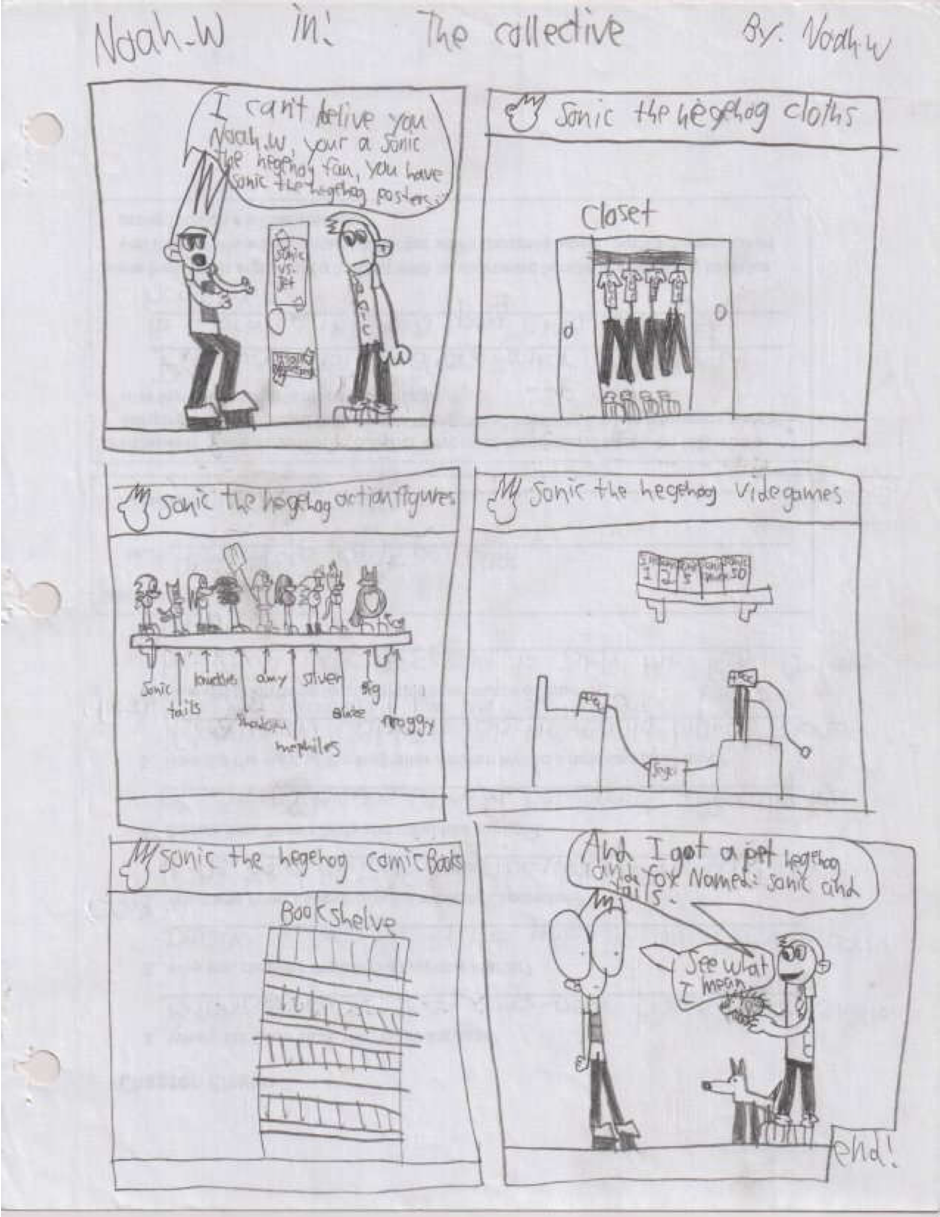 Noah-W in: The collective By: Noah.w
I can't belive you
Noah.w, your a sonic
the hegehog fan, you have
sonic the hegehog posters...
sonic
vs.
jet
Sonic the hegehog cloths
Closet
Sonic the hegehog action figures
Sonic
tails
knuckles
shadow
amy
mephiles
silver
Blaze
Big
froggy
Sonic the hegehog videgames
1
2
Sega
Sonic the hegehog comic Books
Book shelve
And I got a pet hegehog
and fox Named: sonic and
tails!
See what
I mean
end!